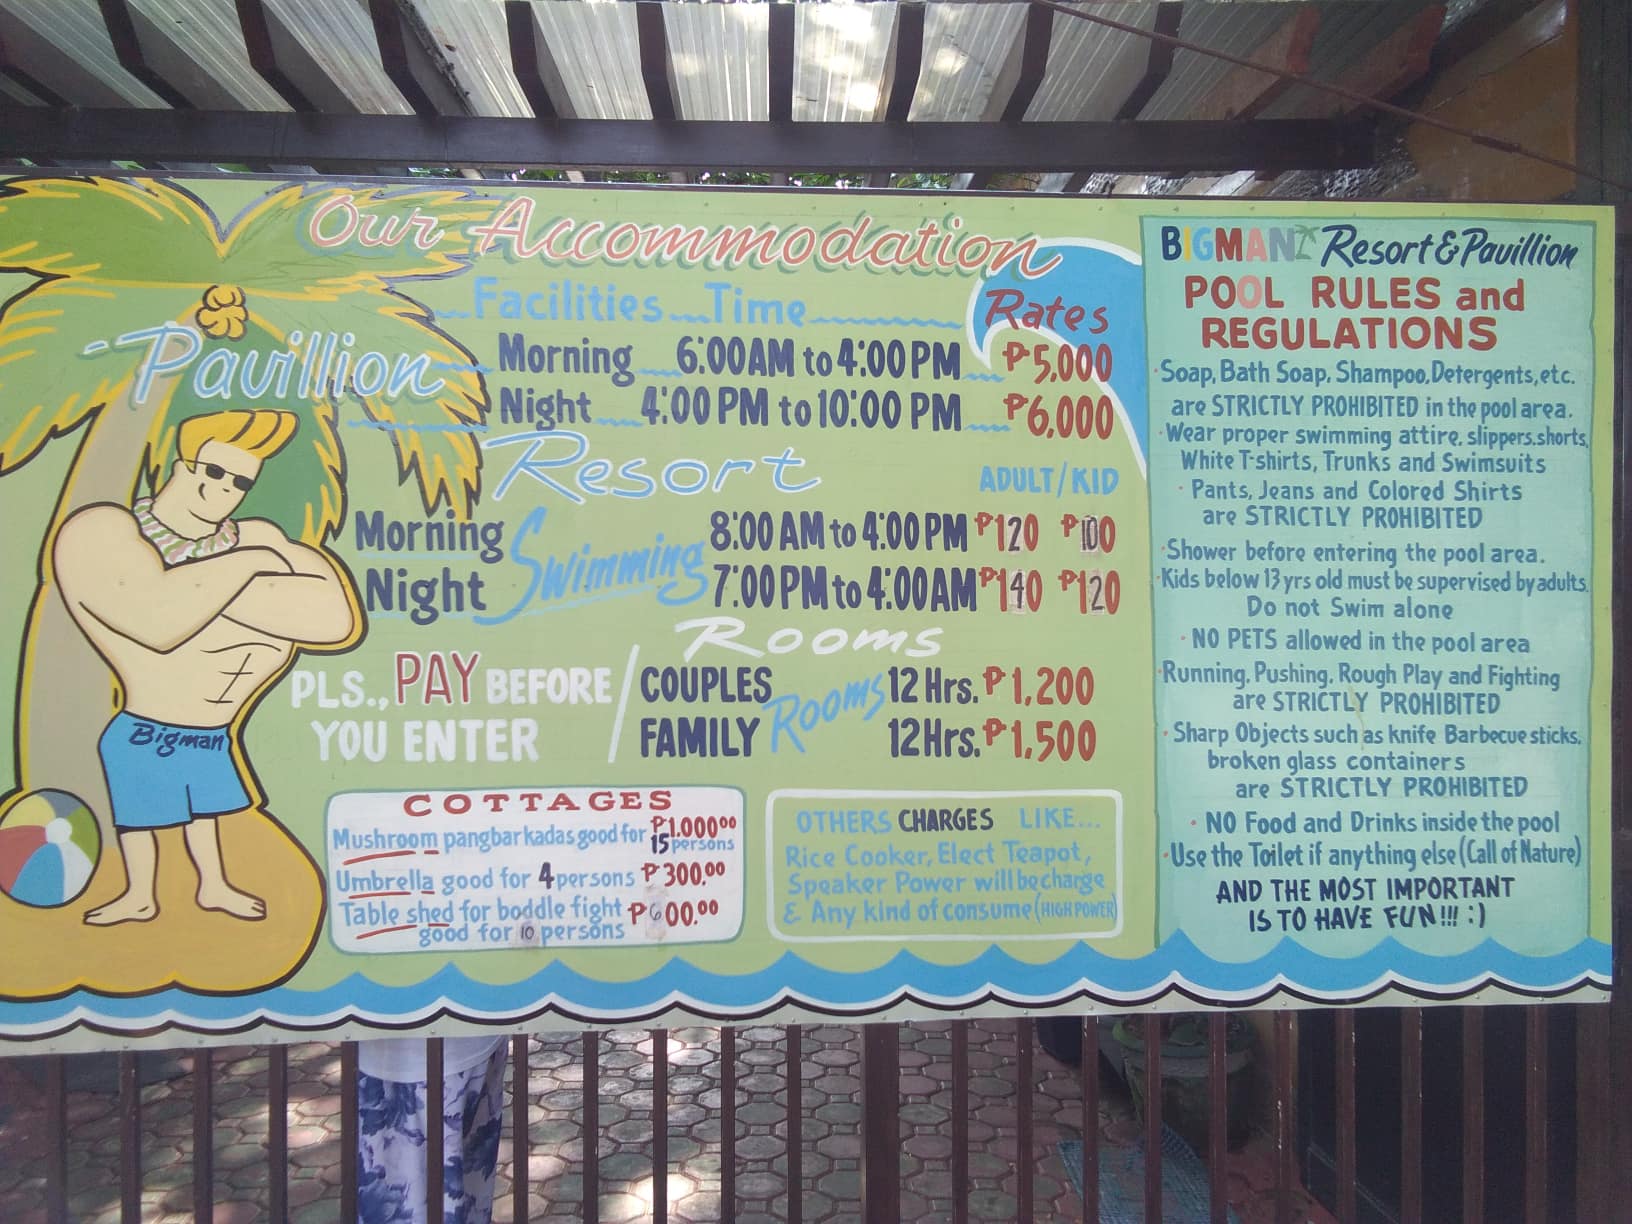 Our Accommodation
Facilities Time Rates
Pavillion
Morning 6:00 AM to 4:00 PM ₱5,000
Night 4:00 PM to 10:00 PM ₱6,000
Resort ADULT/KID
Morning Swimming 8:00 AM to 4:00 PM ₱120 ₱100
Night 7:00 PM to 4:00 AM ₱140 ₱120
Rooms
PLS., PAY BEFORE
YOU ENTER
COUPLES Rooms 12 Hrs. ₱1,200
FAMILY 12 Hrs. ₱1,500
Bigman
COTTAGES
Mushroom pangbarkadas good for 15 persons ₱1.000⁰⁰
Umbrella good for 4 persons ₱300.⁰⁰
Table shed for boddle fight ₱600.⁰⁰
good for 10 persons
OTHERS CHARGES LIKE...
Rice Cooker, Elect Teapot,
Speaker Power will be charge
& Any kind of consume (HIGH POWER)
BIGMAN Resort & Pavillion
POOL RULES and
REGULATIONS
· Soap, Bath Soap, Shampoo, Detergents, etc.
are STRICTLY PROHIBITED in the pool area.
· Wear proper swimming attire, slippers, shorts,
White T-shirts, Trunks and Swimsuits
· Pants, Jeans and Colored Shirts
are STRICTLY PROHIBITED
· Shower before entering the pool area.
· Kids below 13 yrs old must be supervised by adults.
Do not Swim alone
· NO PETS allowed in the pool area
· Running, Pushing, Rough Play and Fighting
are STRICTLY PROHIBITED
· Sharp Objects such as knife Barbecue sticks,
broken glass containers
are STRICTLY PROHIBITED
· NO Food and Drinks inside the pool
· Use the Toilet if anything else (Call of Nature)
AND THE MOST IMPORTANT
IS TO HAVE FUN!!! :)